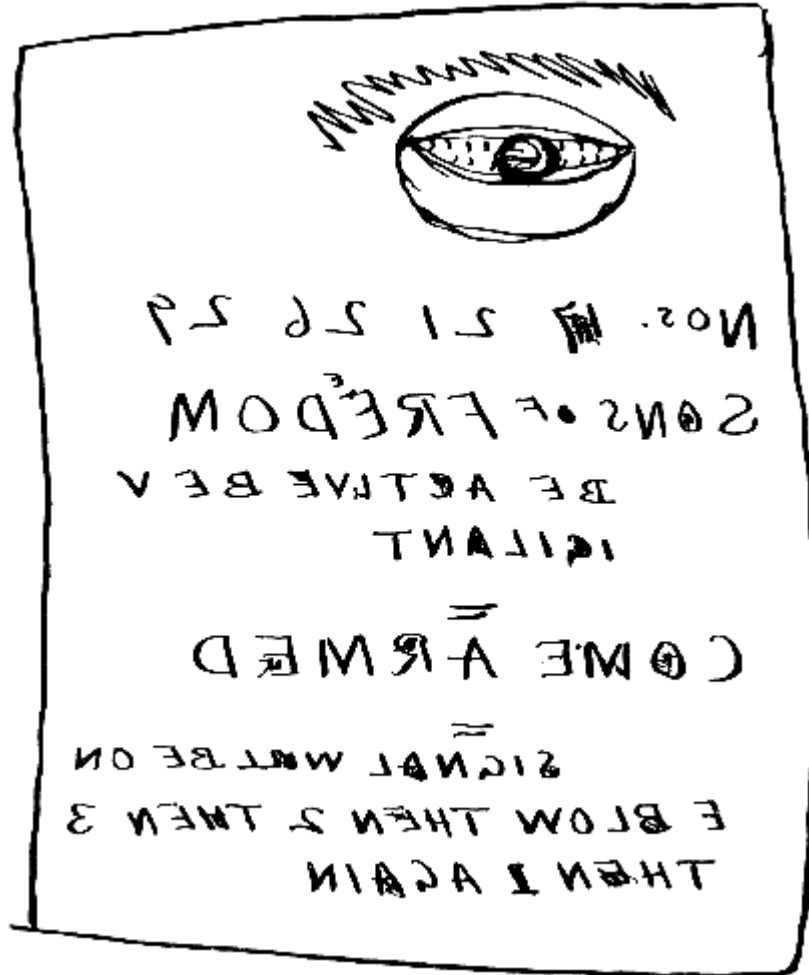 NOS. 21 26 29
SONS OF FREEDOM
BE ACTIVE BE V
IGILANT
COME ARMED
SIGNAL WILL BE ON
E BLOW THEN 2 THEN 3
THEN 1 AGAIN